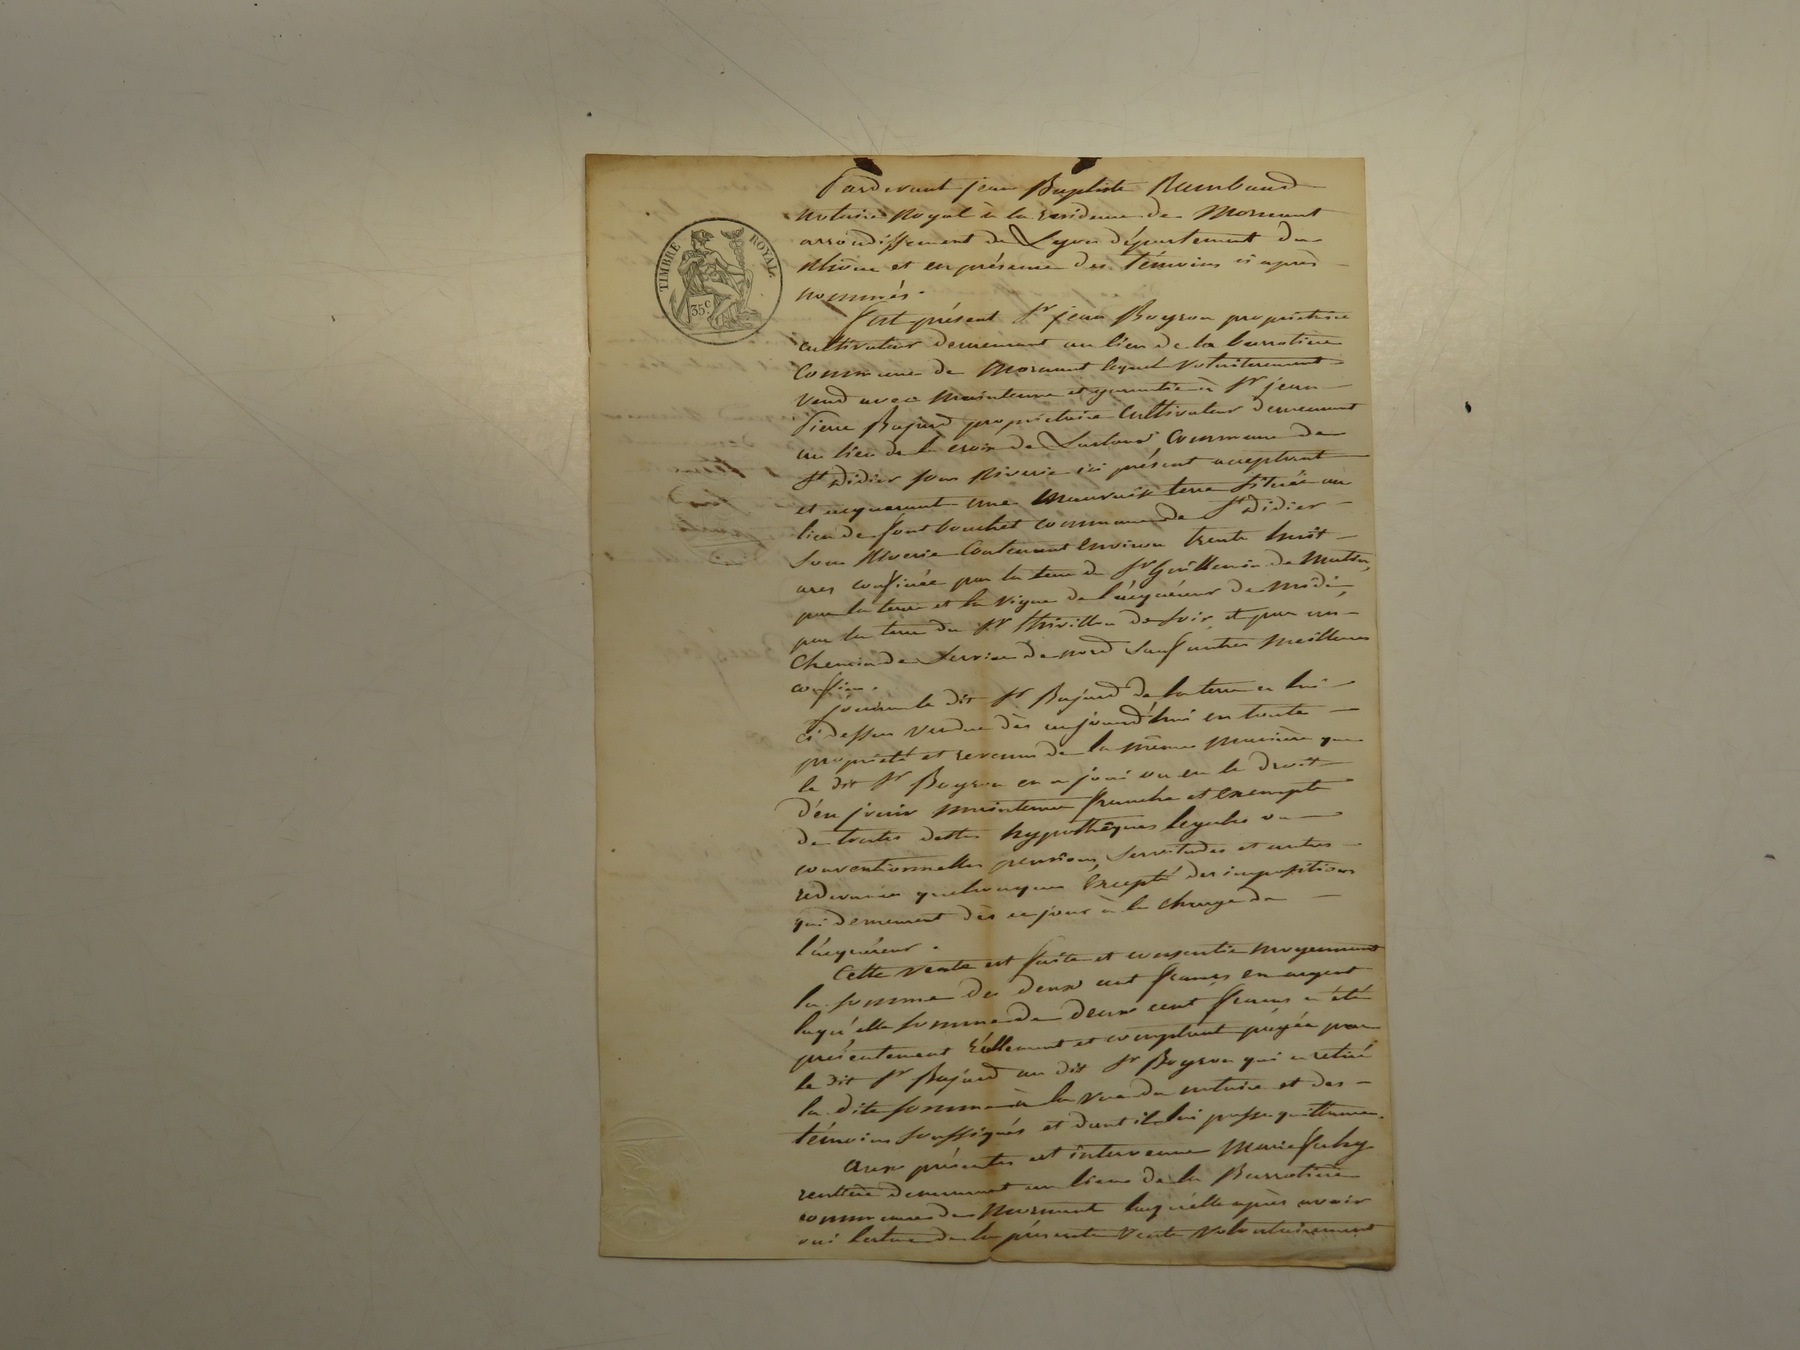 TIMBRE ROYAL
35 c.
Pardevant jean Baptiste Rambaud
notaire Royal à la residence de Mornant
arrondissement de Lyon département du
Rhône et en présence des témoins ci après
nommés.
fut présent Sr jean Boyron propriétaire
cultivateur demeurant au lieu de la barrotiere
commune de Mornant lequel volontairement
vend avec maintenue et garantie à Sr jean
Pierre Bajard propriétaire cultivateur demeurant
au lieu de la croix de commune de
St Didier sous Riverie ici présent acceptant
et acquerant une mauvaise terre située au
lieu de font bouchet commune de St Didier
sous Riverie contenant environ trente huit
ares confinée par la terre de Sr Guillermin de Matin,
par la terre et la vigne de l'acquéreur de midi,
par la terre du Sr thivillon de soir, et par un
chemin de service de nord sauf autres meilleurs
confins.
jouira le dit Sr Bajard de la terre a lui
ci dessus vendue dès aujourd'hui en toute
propriété et revenu de la même manière que
le dit Sr Boyron en a joui ou eu le droit
d'en jouir maintenue franche et exempte
de toutes dettes hypothèques legales ou
conventionnelles pensions, servitudes et autres
redevances quelconques excepté des impositions
qui demeurent dès ce jour à la charge de
l'acquéreur.
Cette vente est faite et consentie moyennant
la somme de deux cent francs en argent
laqu'elle somme de deux cent francs a été
présentement réellement et comptant payée par
le dit Sr Bajard au dit Sr Boyron qui a retiré
la dite somme à la vue du notaire et des
témoins soussignés et dont il lui passe quittance.
aux présentes est intervenue Marie fahy
rentière demeurant au lieu de la Barrotière
commune de Mornant laqu'elle après avoir
oui lecture de la présente vente volontairement